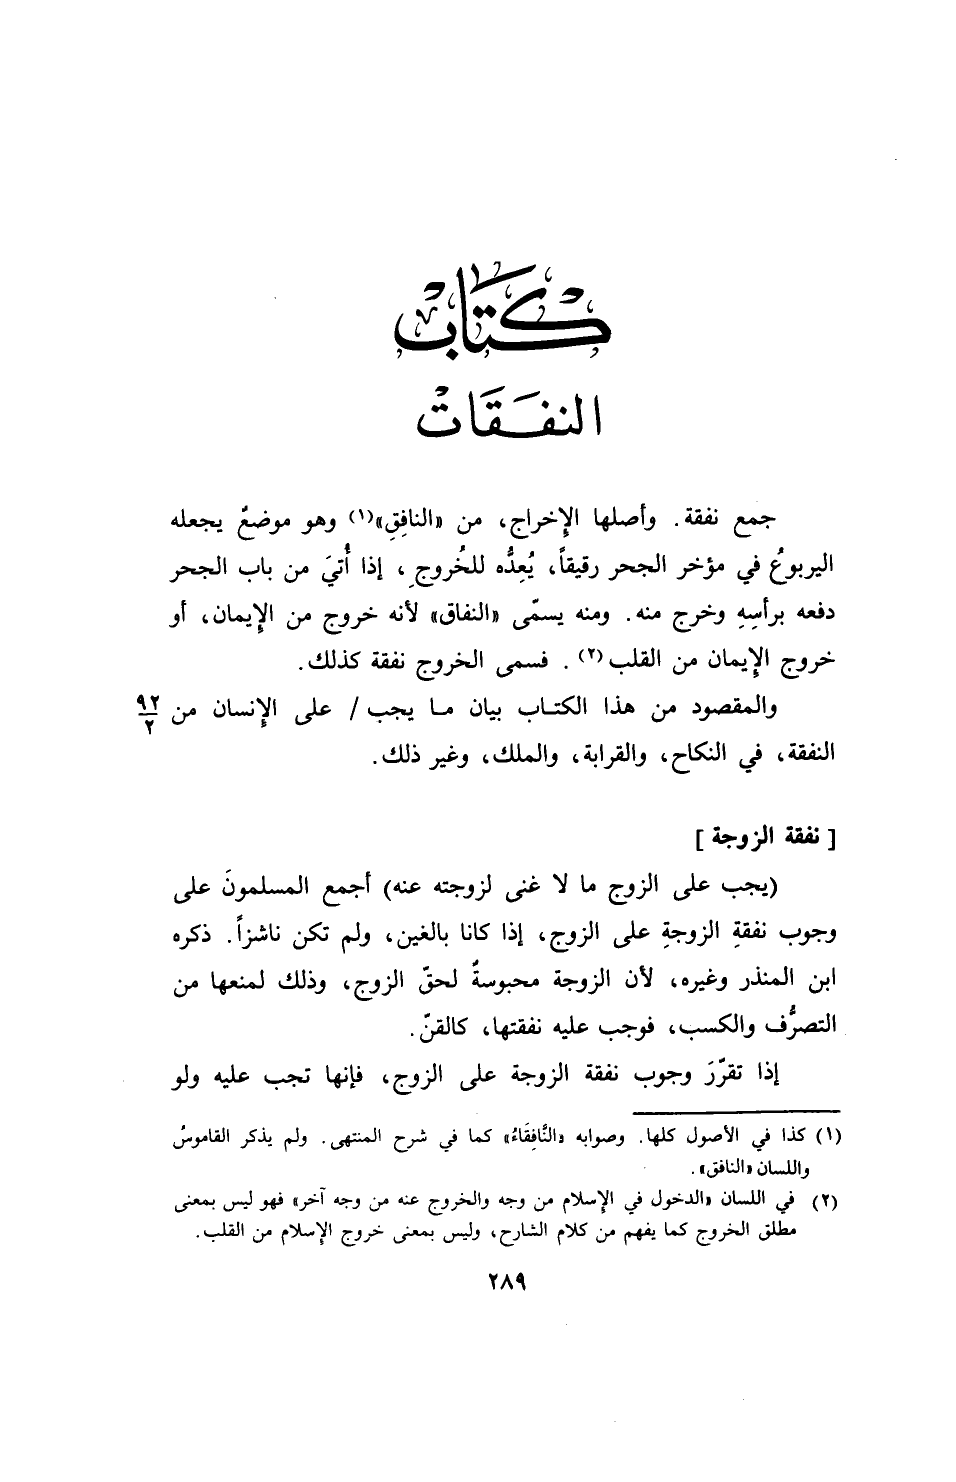 كتاب
النفقات
جمع نفقة. وأصلها الإخراج، من «النافِقِ»(١) وهو موضعٌ يجعله
اليربوعُ في مؤخر الجحر رقيقاً، يُعِدُّه للخُروجِ، إذا أُتيَ من باب الجحر
دفعه برأسِهِ وخرج منه. ومنه يسمّى «النفاق» لأنه خروج من الإيمان، أو
خروج الإيمان من القلب(٢). فسمى الخروج نفقة كذلك.
والمقصود من هذا الكتاب بيان ما يجب/ على الإنسان من ٩٢/٢
النفقة، في النكاح، والقرابة، والملك، وغير ذلك.
[نفقة الزوجة]
(يجب على الزوج ما لا غنى لزوجته عنه) أجمع المسلمونَ على
وجوب نفقةِ الزوجةِ على الزوج، إذا كانا بالغين، ولم تكن ناشزاً. ذكره
ابن المنذر وغيره، لأن الزوجة محبوسةٌ لحقّ الزوج، وذلك لمنعها من
التصرُّف والكسب، فوجب عليه نفقتها، كالقنّ.
إذا تقرّرَ وجوب نفقة الزوجة على الزوج، فإنها تجب عليه ولو
(١) كذا في الأصول كلها. وصوابه «النَّافِقَاءُ» كما في شرح المنتهى. ولم يذكر القاموسُ
واللسان «النافق».
(٢) في اللسان «الدخول في الإسلام من وجه والخروج عنه من وجه آخر» فهو ليس بمعنى
مطلق الخروج كما يفهم من كلام الشارح، وليس بمعنى خروج الإسلام من القلب.
٢٨٩